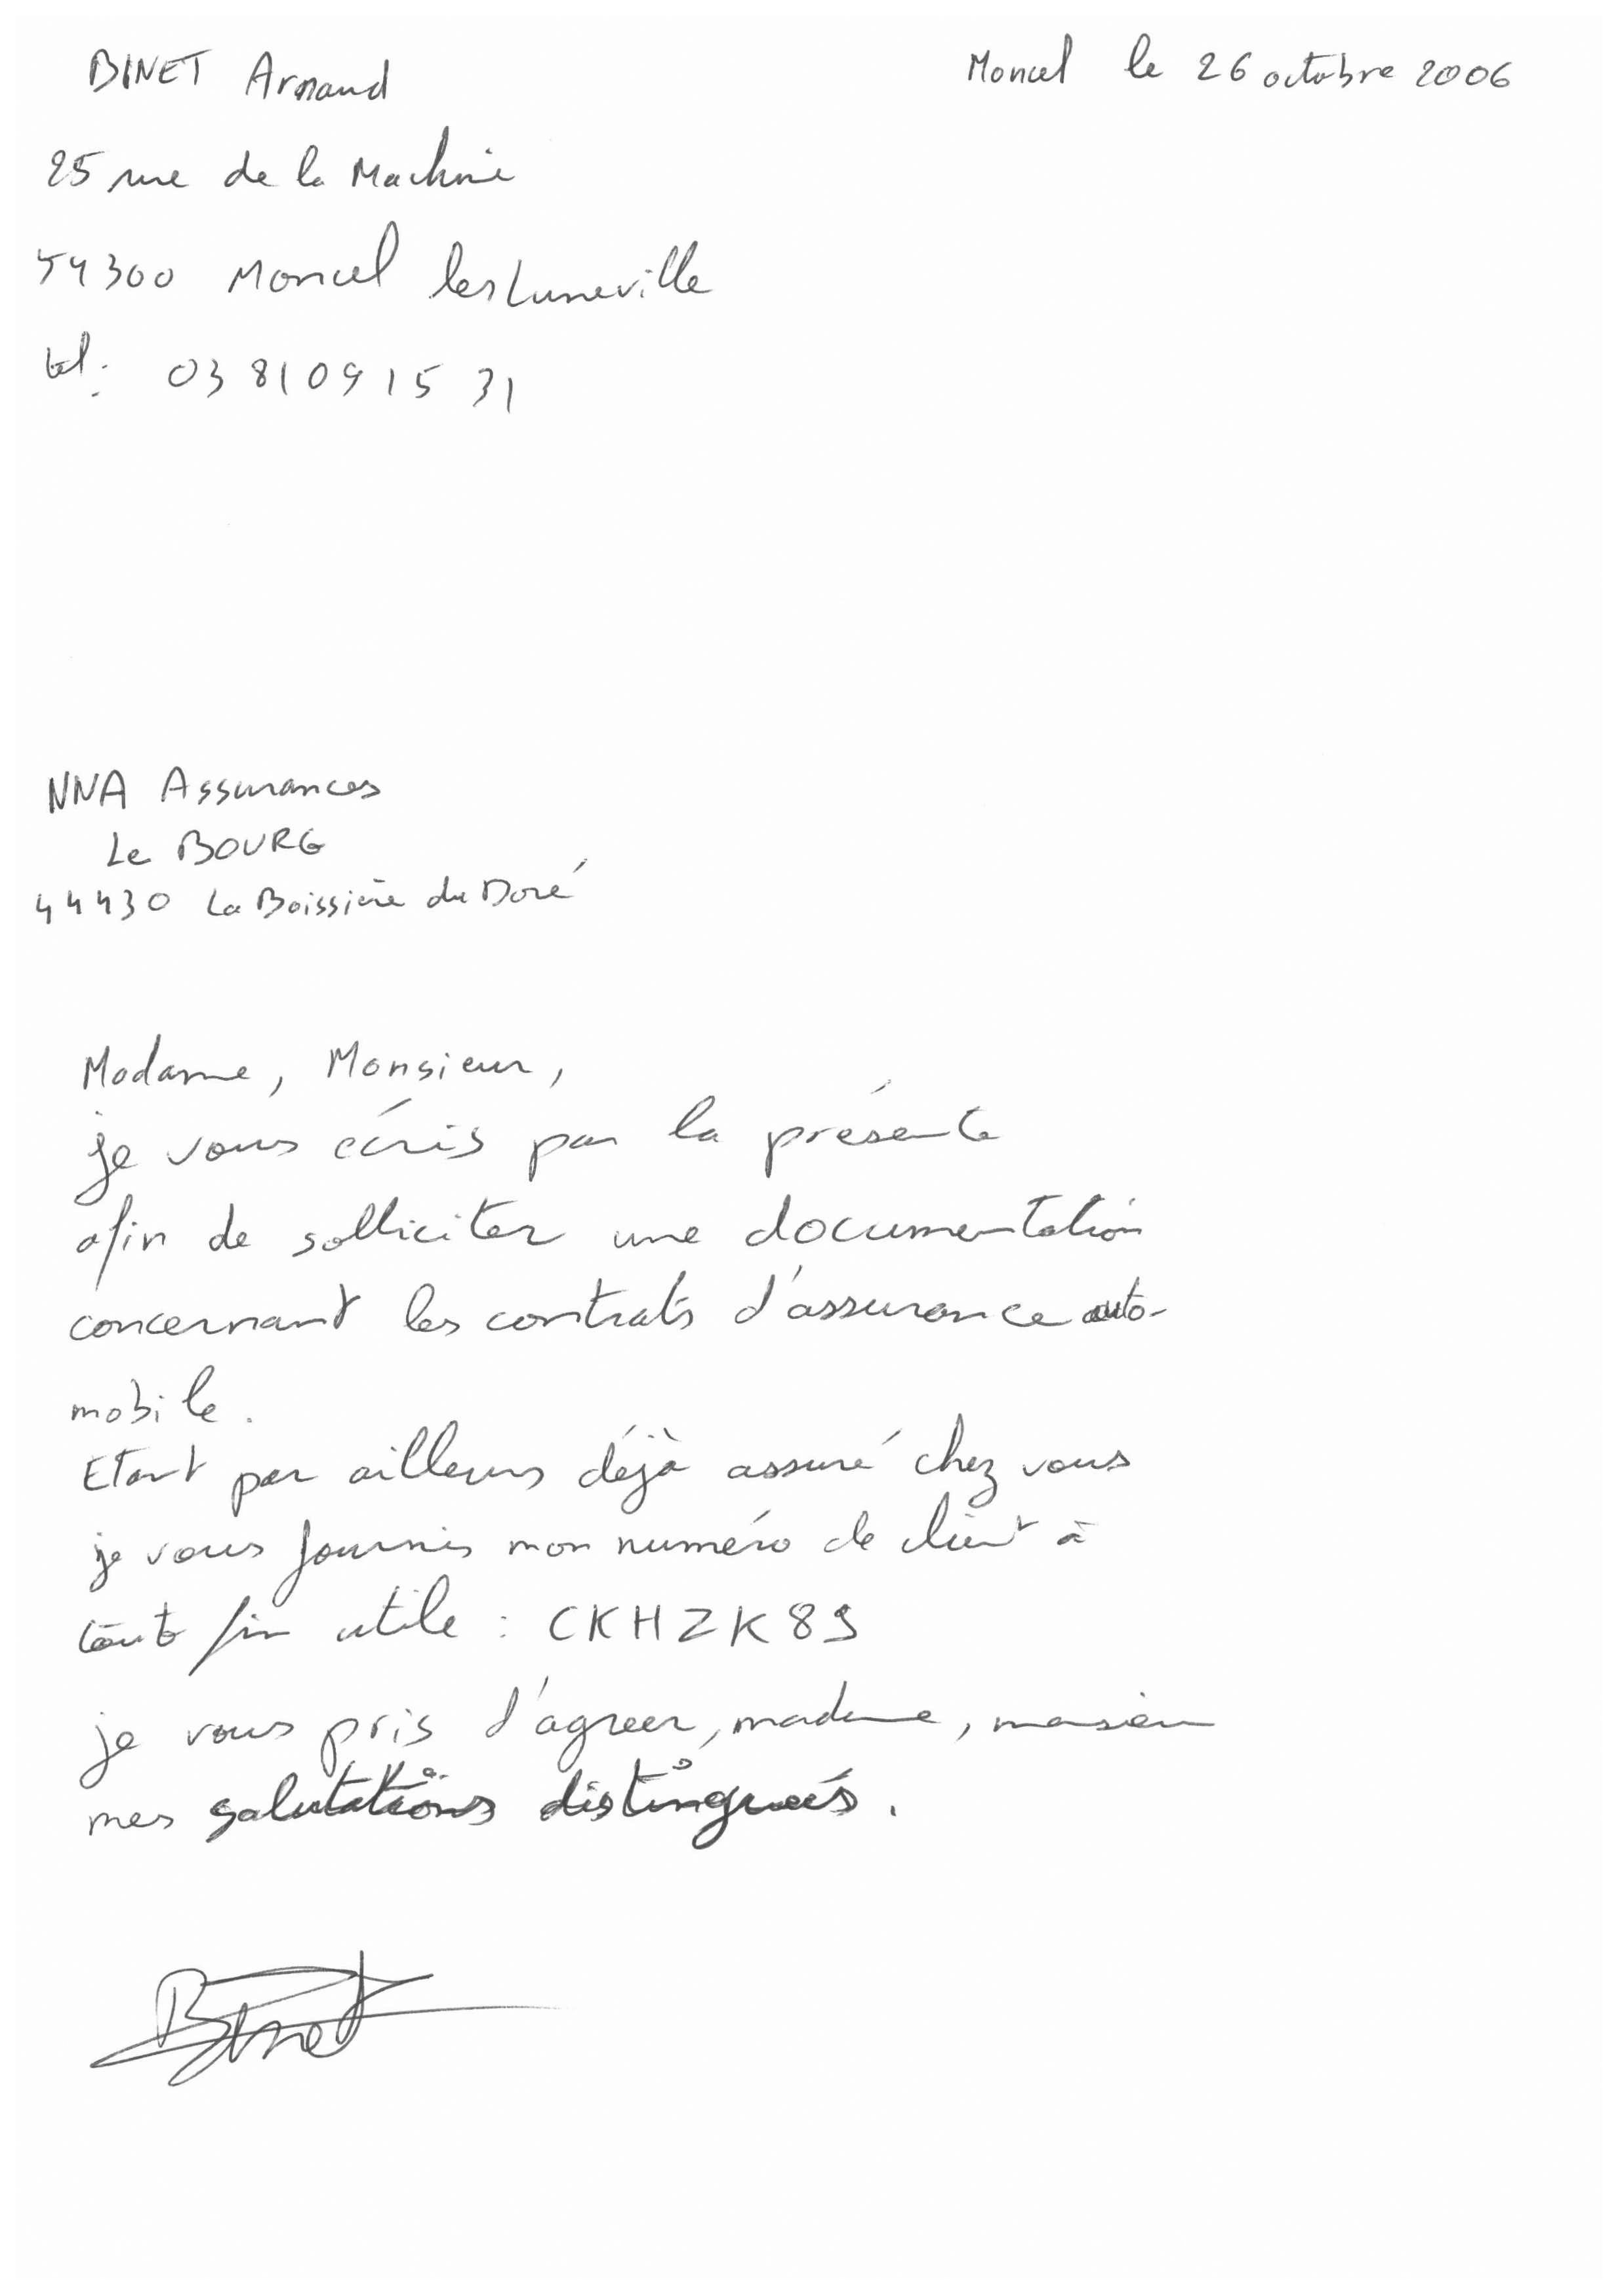 BINET Arnaud
Moncel le 26 octobre 2006
25 rue de la Machine
54300 Moncel les Luneville
tel: 03 81 09 15 31
NNA Assurances
Le BOURG
44430 La Boissière du Doré
Madame, Monsieur,
je vous écris par la présente
afin de solliciter une documentation
concernant les contrats d'assurance auto-
mobile.
Etant par ailleurs déjà assuré chez vous
je vous fournis mon numéro de client à
toute fin utile : CKHZK89
je vous pris d'agreer, madame, monsieur
mes salutations distingués.
Binet